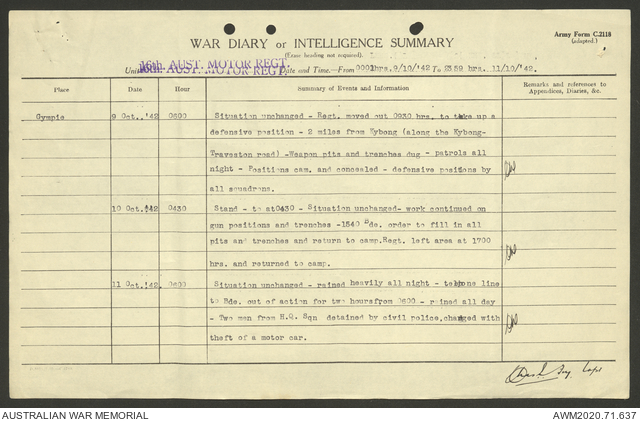 Army Form C.2118
(adapted.)
WAR DIARY or INTELLIGENCE SUMMARY
(Erase heading not required).
16th. AUST. MOTOR REGT.
Unit 16th. AUST. MOTOR REGT. Date and Time.—From 0001hrs. 9/10/'42 To 2359 hrs. 11/10/'42.
Place Date Hour Summary of Events and Information Remarks and references to Appendices, Diaries, &c.
Gympie 9 Oct..'42 0600 Situation unchanged - Regt. moved out 0930 hrs. to take up a
defensive position - 2 miles from Kybong (along the Kybong-
Traveston road) -Weapon pits and trenches dug - patrols all
night - Positions cam. and concealed - defensive positions by
all squadrons.
10 Oct.'42 0430 Stand - to at0430 - Situation unchanged- work continued on
gun positions and trenches -1540 Bde. order to fill in all
pits and trenches and return to camp.Regt. left area at 1700
hrs. and returned to camp.
11 Oct.'42. 0600 Situation unchanged - rained heavily all night - telephone line
to Bde. out of action for two hoursfrom 0600 - rained all day
- Two men from H.Q. Sqn detained by civil police,charged with
theft of a motor car.
AUSTRALIAN WAR MEMORIAL
AWM2020.71.637